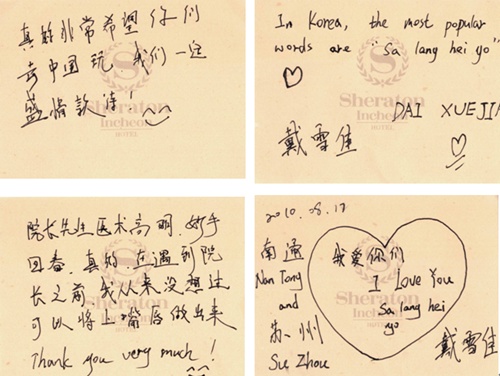 真的非常希望你们
去中国玩,我们一定
盛情款待!
Sheraton
Incheon
HOTEL
In Korea, the most popular
words are "Sa lang hei yo"
Sheraton
Incheon
HOTEL
DAI XUEJIA
戴雪佳
院长先生医术高明,妙手
回春,真的,在遇到院
长之前 我从来没想过
可以将上嘴唇做出来
Thank you very much!
Sheraton
Incheon
2010.08.17
南通
Nan Tong
and
苏州
Su Zhou
我爱你们
I Love You
Sa lang hei
yo
Sheraton
Incheon
戴雪佳